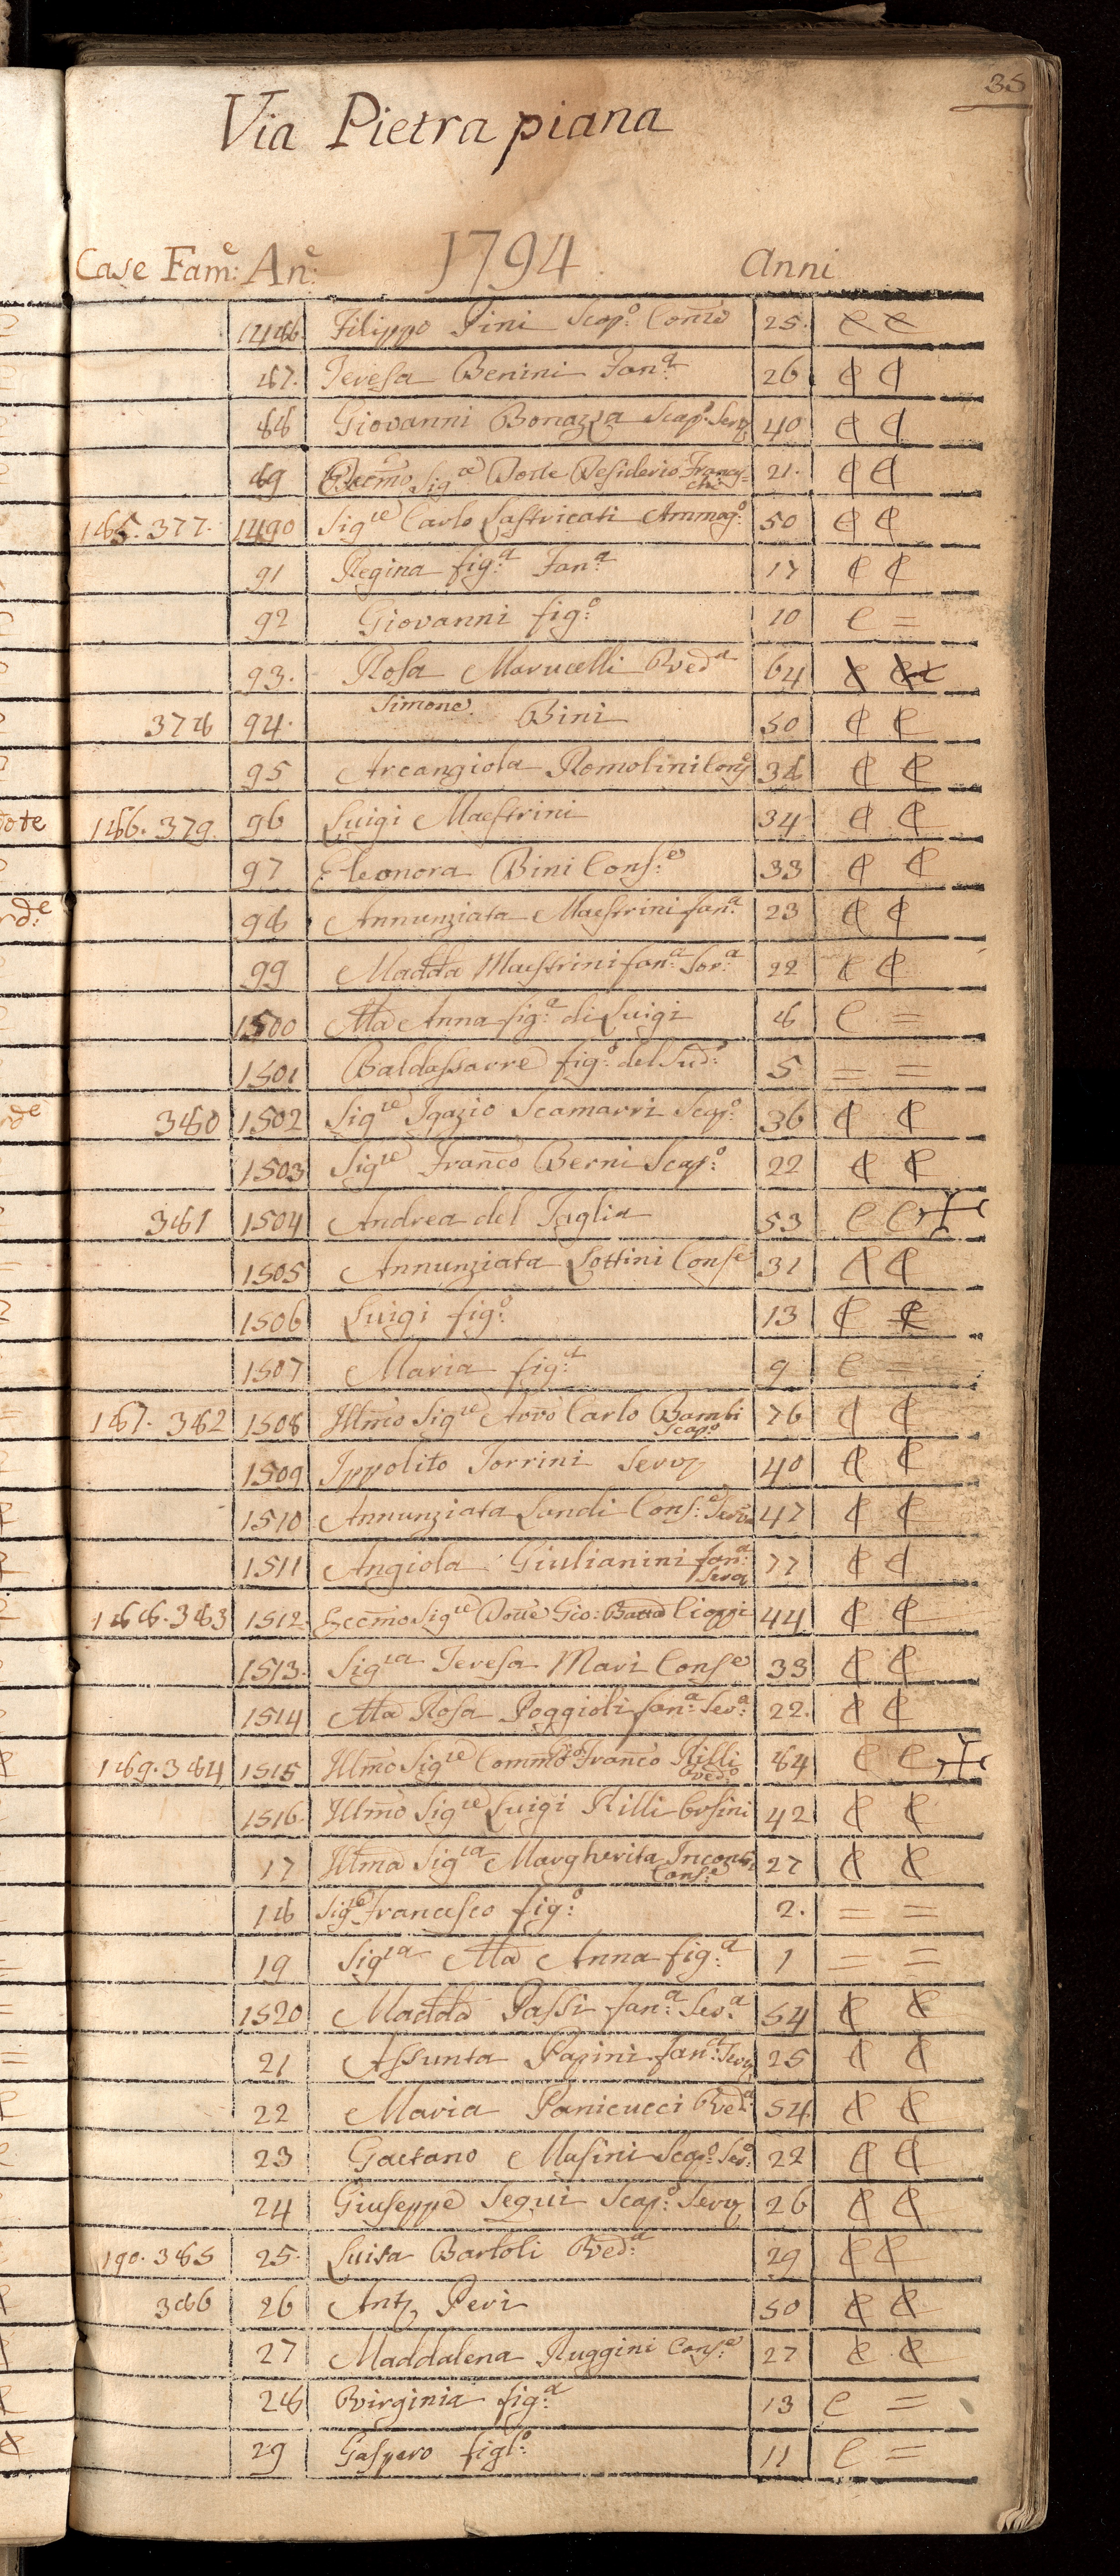 35
Via Pietra piana
Case Fam:e An:e 1794 Anni
1486 Filippo Pini Scap:o 25 C C
87 Teresa Benini Fan:a 26 C C
88 Giovanni Bonazza Scap:o Serv 40 C C
89 Sig:re Desiderio Franceschi 21 C C
185. 377. 1490 Sig:re Carlo Lastricati Ammog:o 50 C C
91 Regina fig:a Fan:a 17 C C
92 Giovanni fig:o 10 C =
93. Rosa Marucelli Ved:a 64 C C
378 94. Simone Bini 50 C C
95 Arcangiola Romolini Cons 38 C C
186. 379 96 Luigi Maestrini 34 C C
97 Eleonora Bini Cons:e 33 C C
98 Annunziata Maestrini fan:a 23 C C
99 Madda Maestrini fan:a Sor:a 22 C C
1500 Ma Anna fig:a di Luigi 8 C =
1501 Baldassarre fig:o del Sud:o 5 = =
380 1502 Sig:re Igazio Scamarri Scap:o 36 C C
1503 Sig:re Franco Berni Scap:o 22 C C
381 1504 Andrea del Taglia 53 C C
1505 Annunziata Lottini Conse 31 C C
1506 Luigi fig:o 13 C C
1507 Maria fig:a 9 C =
187. 382 1508 Illmo Sig:re Avvo Carlo Bambi Scap:o 76 C C
1509 Ippolito Torrini Serv 40 C C
1510 Annunziata Landi Cons:e Serva 47 C C
1511 Angiola Giulianini fan:a Serva 77 C C
188. 383 1512. Eccmo Sig:re Dotte Gio: Batta Cioppi 44 C C
1513. Sig:ra Teresa Mari Conse 33 C C
1514 Ma Rosa Poggioli fan:a Ser:a 22. C C
189. 384 1515 Illmo Sig:re Commo Franco Rilli Ved:o 84 C C
1516. Illmo Sig:re Luigi Rilli Orsini 42 C C
17 Illma Sig:ra Margherita Cons:e 27 C C
18 Sig:re Francesco fig:o 2. = =
19 Sig:ra Ma Anna fig:a 1 = =
1520 Madda Passi fan:a Ser:a 54 C C
21 Assunta Papini fan:a Serv 25 C C
22 Maria Panicucci Ved:a 54 C C
23 Gaetano Masini Scap:o Ser:o 22 C C
24 Giuseppe Segui Scap:o Serv 26 C C
190. 385 25. Luisa Bartoli Ved:a 29 C C
386 26 Anto Peri 50 C C
27 Maddalena Ruggini Cons:e 27 C C
28 Virginia fig:a 13 C =
29 Gaspero figl:o 11 C =